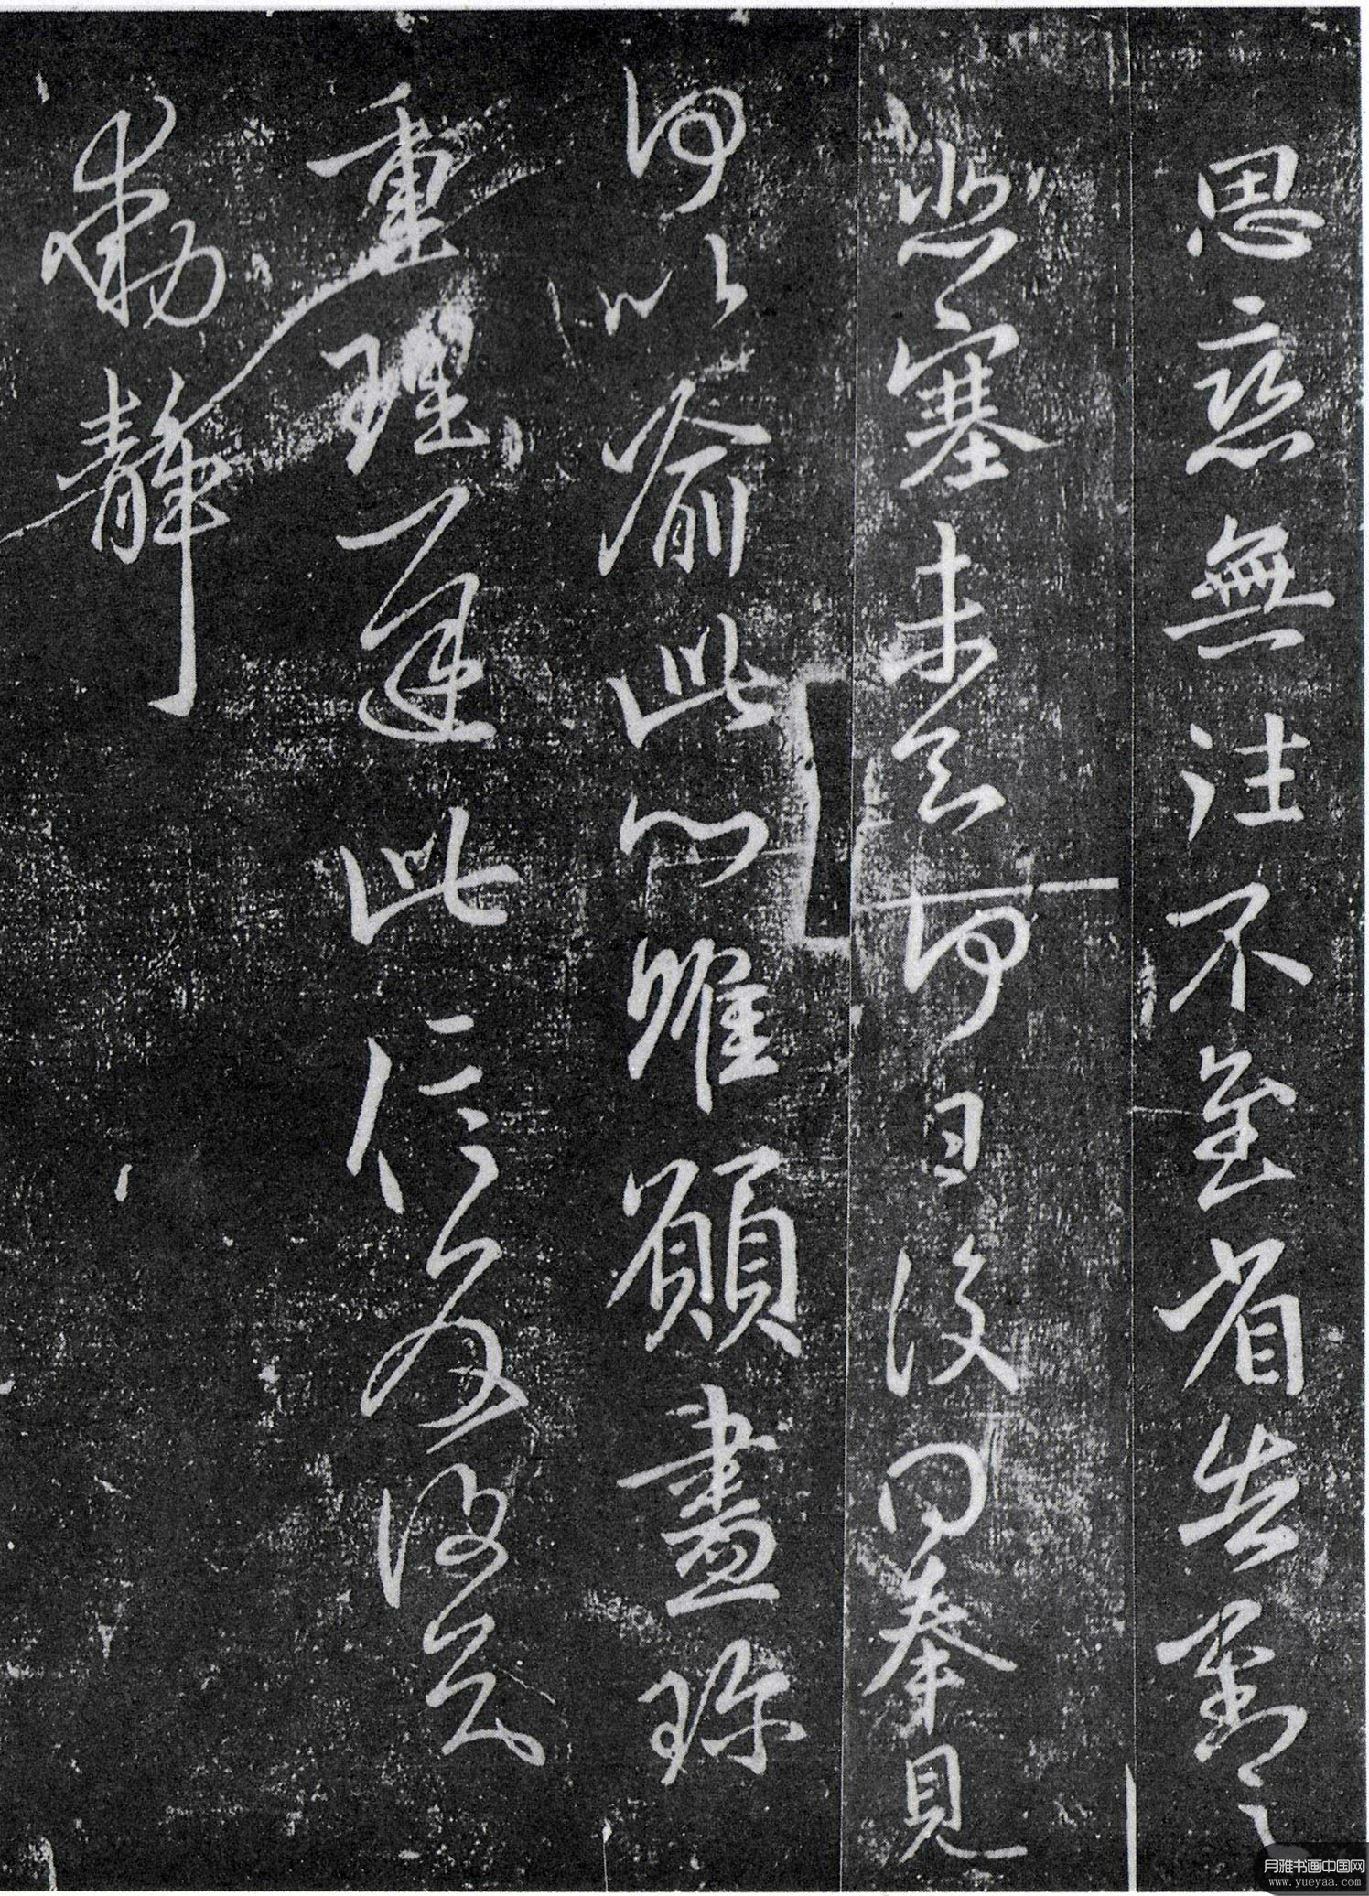 思戀無往不至省告對之
悲塞未知何日復奉見
何以喻此心惟願盡珍
重理遲此信反復知
動靜
月雅书画中国网
www.yueyaa.com